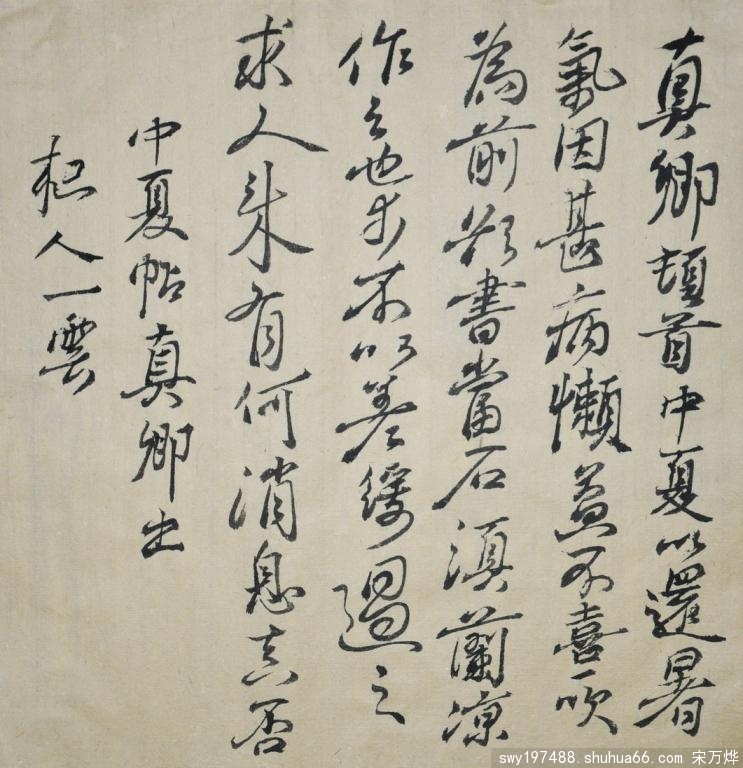 真卿頓首中夏以還暑
氣因甚病懶益不喜吹
為前欲書當石滇蘭涼
作之也幸不以緩過之
求人來有何消息真否
中夏帖真卿出
杞人一雲
swy197488.shuhua66.com 宋万烨